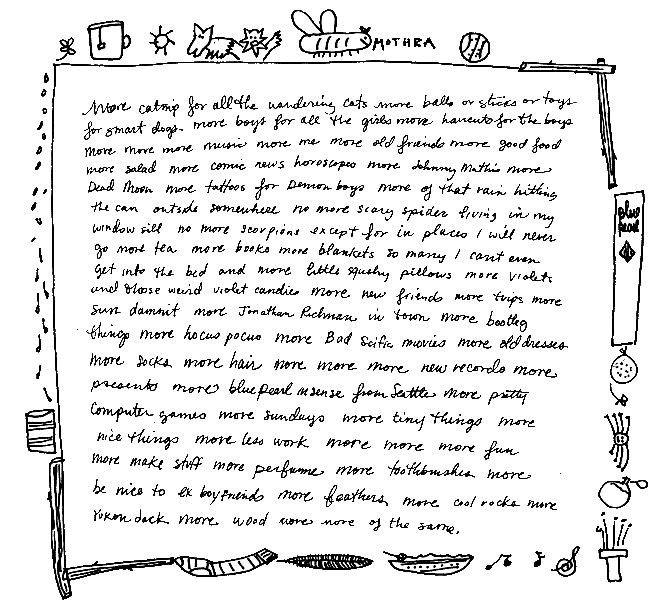 MOTHRA
More catnip for all the wandering cats more balls or sticks or toys
for smart dogs more boys for all the girls more haircuts for the boys
more more more music more me more old friends more good food
more salad more comic news horoscopes more Johnny Mathis more
Dead Moon more tattoos for Demon boys more of that rain hitting
the can outside somewhere no more scary spider living in my
window sill no more scorpions except for in places I will never
go more tea more books more blankets so many I can't even
get into the bed and more little squishy pillows more violets
and those weird violet candies more new friends more trips more
sun damnit more Jonathan Richman in town more bootleg
things more hocus pocus more Bad Scific movies more old dresses
more socks more hair more more more new records more
presents more blue pearl insense from Seattle more pretty
computer games more sundays more tiny things more
nice things more less work more more more fun
more make stuff more perfume more toothbrushes more
be nice to ex boyfriends more feathers more cool rocks more
Yukon Jack more wood more more of the same.
blue
pearl